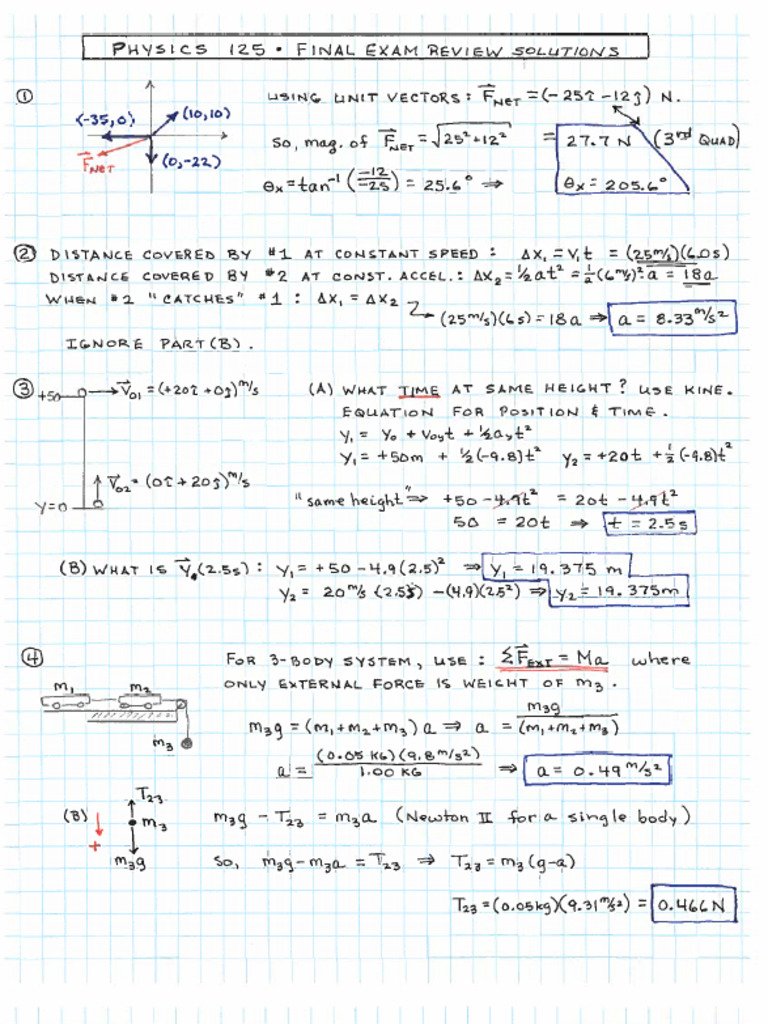 PHYSICS 125 • FINAL EXAM REVIEW SOLUTIONS
①
(-35,0)
(10,10)
F⃗NET
(0,-22)
USING UNIT VECTORS: F⃗NET = (-25î -12ĵ) N.
So, mag. of F⃗NET = √25²+12² = 27.7 N (3rd QUAD)
θx = tan⁻¹ (-12/-25) = 25.6° ⇒ θx = 205.6°
② DISTANCE COVERED BY #1 AT CONSTANT SPEED: Δx₁ = V₁t = (25m/s)(6.0s)
DISTANCE COVERED BY #2 AT CONST. ACCEL.: Δx₂ = ½at² = ½(6m/s)²·a = 18a
WHEN #2 "CATCHES" #1: Δx₁ = Δx₂
(25m/s)(6s) = 18a ⇒ a = 8.33 m/s²
IGNORE PART (B).
③
+50
V⃗01 = (+20î + 0ĵ) m/s
V⃗02 = (0î + 20ĵ) m/s
Y=0
(A) WHAT TIME AT SAME HEIGHT? USE KINE.
EQUATION FOR POSITION & TIME.
y₁ = y₀ + v₀yt + ½ayt²
y₁ = +50m + ½(-9.8)t² y₂ = +20t + ½(-9.8)t²
"same height" ⇒ +50 - 4.9t² = 20t - 4.9t²
50 = 20t ⇒ t = 2.5s
(B) WHAT IS Y⃗(2.5s): y₁ = +50 - 4.9(2.5)² ⇒ y₁ = 19.375 m
y₂ = 20m/s (2.5s) - (4.9)(2.5²) ⇒ y₂ = 19.375m
④
m₁
m₂
m₃
FOR 3-BODY SYSTEM, USE: ΣF⃗EXT = Ma where
ONLY EXTERNAL FORCE IS WEIGHT OF m₃.
m₃g = (m₁+m₂+m₃) a ⇒ a = m₃g/(m₁+m₂+m₃)
a = (0.05 KG)(9.8 m/s²)/1.00 KG ⇒ a = 0.49 m/s²
(B)
+
T₂₃
m₃
m₃g
m₃g - T₂₃ = m₃a (Newton II for a single body)
So, m₃g - m₃a = T₂₃ ⇒ T₂₃ = m₃(g-a)
T₂₃ = (0.05kg)(9.31 m/s²) = 0.466N